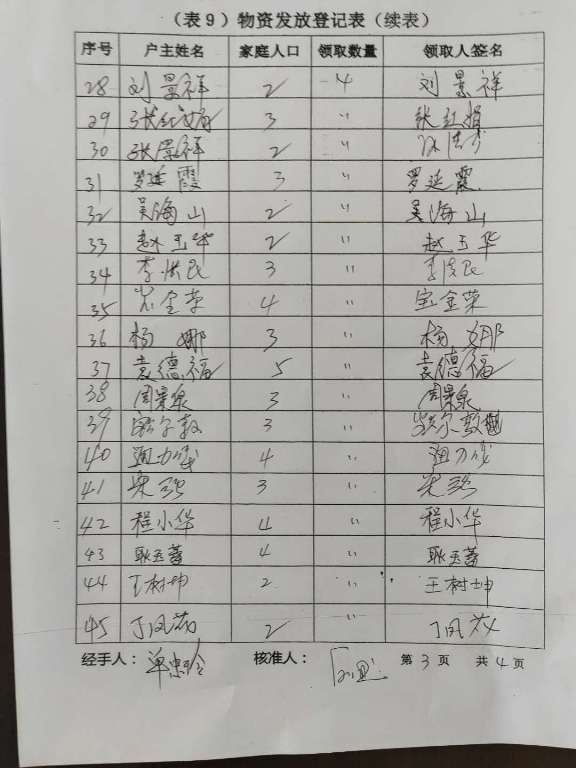 （表9）物资发放登记表（续表）
序号 户主姓名 家庭人口 领取数量 领取人签名
28 刘景祥 2 4 刘景祥
29 张红娟 3 〃 张红娟
30 张景祥 2 〃
31 罗延霞 3 〃 罗延霞
32 吴海山 2 〃 吴海山
33 赵玉华 2 〃 赵玉华
34 李洪民 3 〃 李洪民
35 金荣 4 〃 宝金荣
36 杨娜 3 〃 杨娜
37 袁德福 5 〃 袁德福
38 周景泉 3 〃 周景泉
39 3 〃
40 4 〃
41 3 〃
42 程小华 4 〃 程小华
43 耿玉蕃 4 〃 耿玉蕃
44 王树坤 2 〃 王树坤
45 丁凤 2 〃 丁凤
经手人：单忠玲 核准人： 第3页 共4页